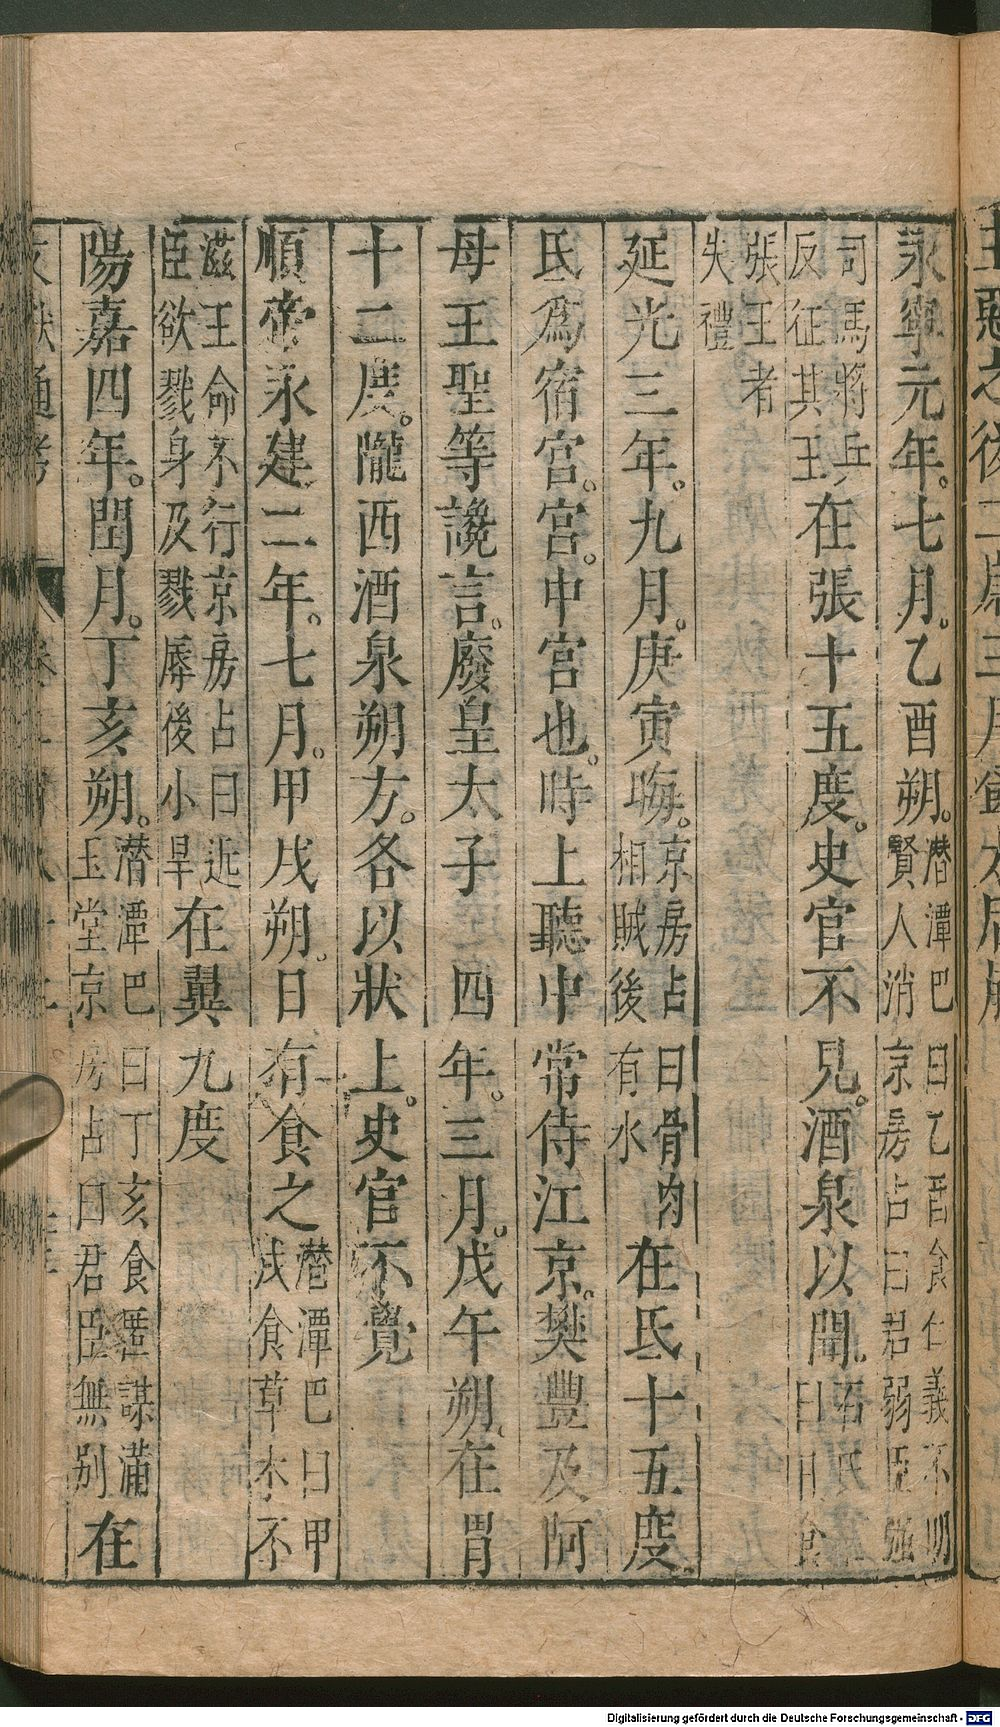 永寧元年七月乙酉朔潜潭巴曰乙酉食仁義不明賢人消京房占曰君弱臣强
司馬將兵反征其王在張十五度史官不見酒泉以聞石氏曰日食
張王者失禮
延光三年九月庚寅晦京房占曰骨肉相賊後有水在氐十五度
氐爲宿宫宫中宫也時上聽中常侍江京樊豐及阿
母王聖等讒言廢皇太子四年三月戊午朔在胃
十二度隴西酒泉朔方各以狀上史官不覺
順帝永建二年七月甲戌朔日有食之潜潭巴曰甲戌食草木不
滋王命不行京房占曰近臣欲戮身及戮辱後小旱在翼九度
陽嘉四年閏月丁亥朔潜潭巴曰丁亥食匿謀滿玉堂京房占曰君臣無别在
Digitalisierung gefördert durch die Deutsche Forschungsgemeinschaft - DFG